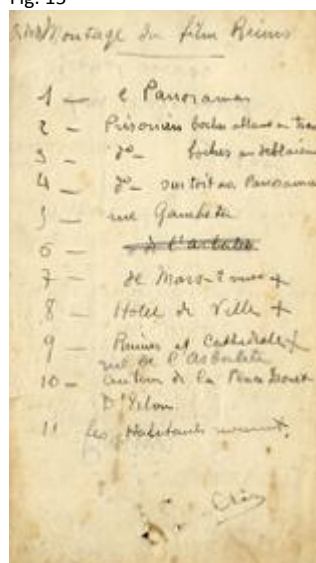 Fig. 13
Montage du film Reims
1 — Panorama
2 — Prisonniers boches allant au
3 — do — boches au
4 — do — sur toit au Panorama
5 — rue Gambetta
6 — de l'arbalète
7 — de Mars
8 Hotel de Ville +
9 — Ruines et Cathédrale +
rue de l'Arbalète
10 — autour de la Place Drouet
D'Erlon
11 Les Habitants